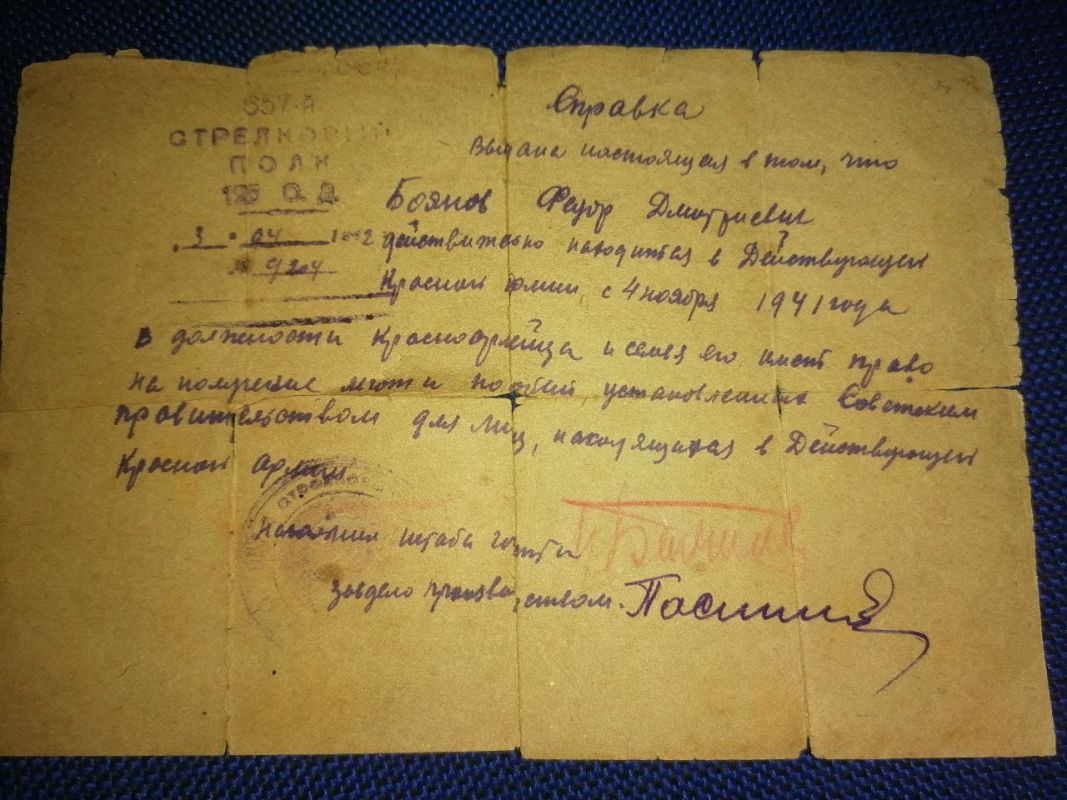 657-й
СТРЕЛКОВЫЙ
ПОЛК
125 С. Д.
3 " 04 1942
№ 9204
Справка
Выдана настоящая в том, что
Боянов Федор Дмитриевич
действительно находится в Действующей
Красной Армии с 4 ноября 1941 года
в должности Красноармейца и семья его имеет право
на получение льгот и пособий, установленных Советским
правительством для лиц, находящихся в Действующей
Красной Армии
Начальник штаба
Завделопроизводством.